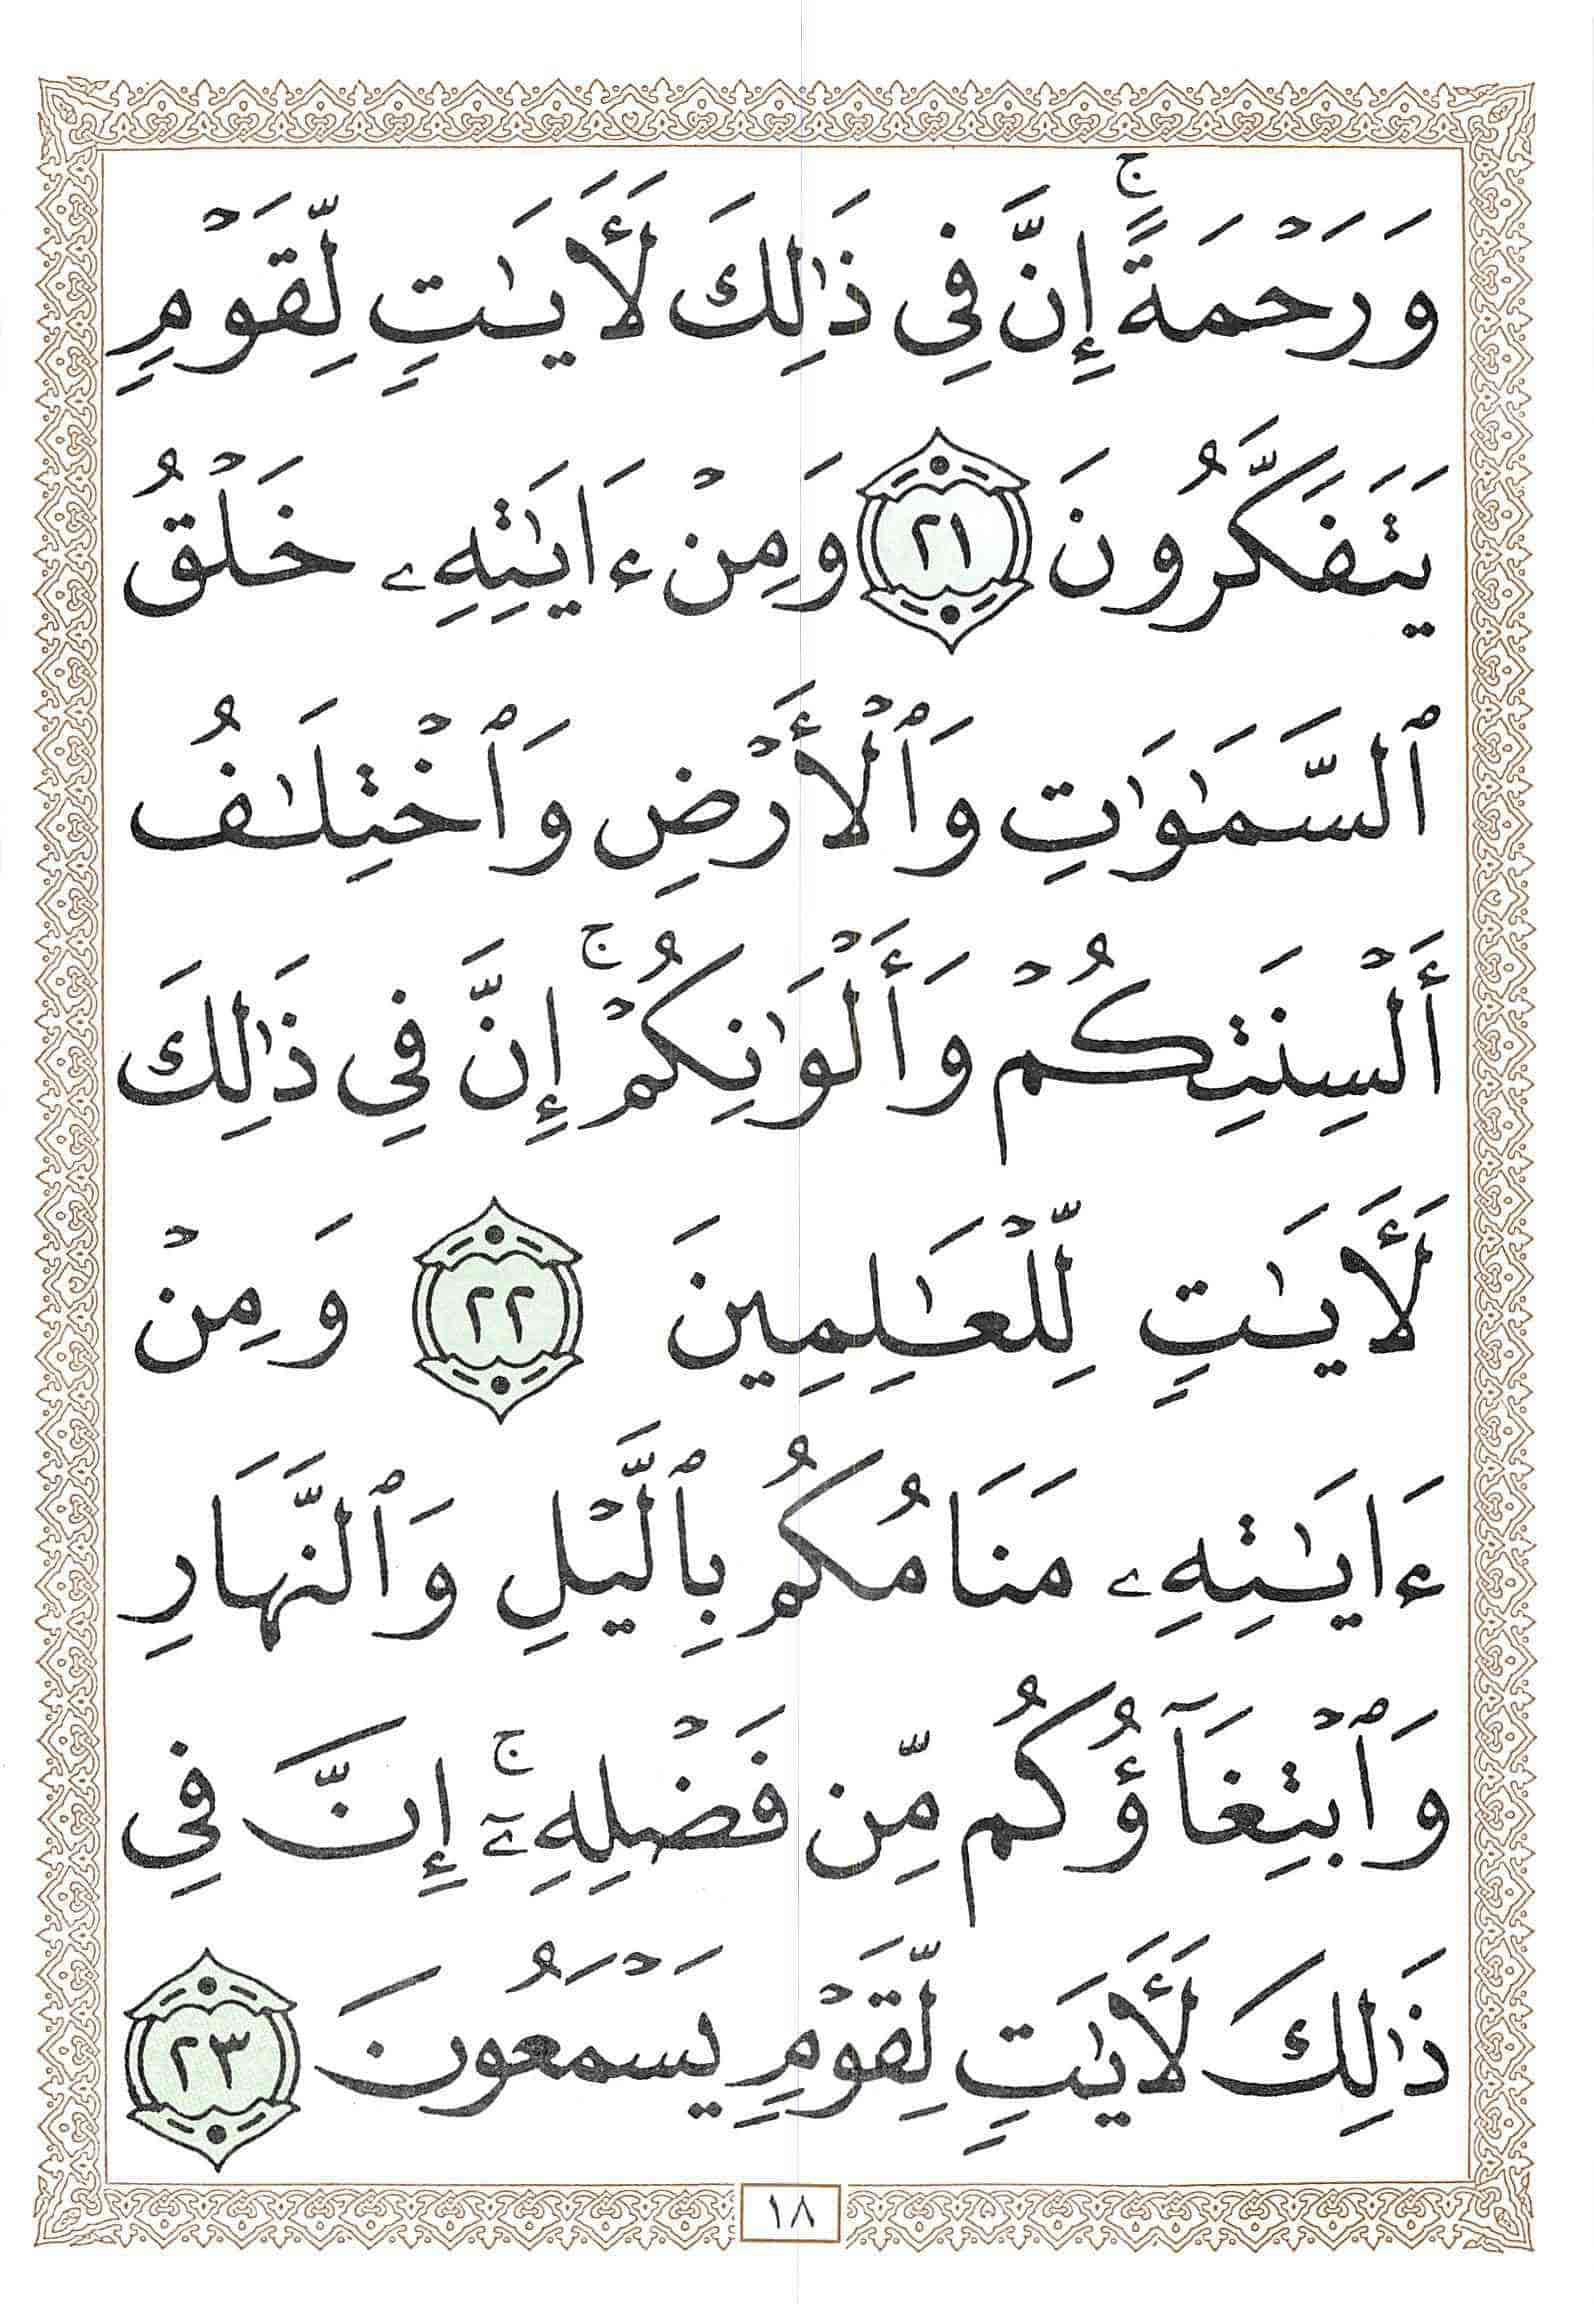 وَرَحۡمَةًۚ إِنَّ فِي ذَٰلِكَ لَأَيَٰتٖ لِّقَوۡمٖ
يَتَفَكَّرُونَ ٢١ وَمِنۡ ءَايَٰتِهِۦ خَلۡقُ
ٱلسَّمَٰوَٰتِ وَٱلۡأَرۡضِ وَٱخۡتِلَٰفُ
أَلۡسِنَتِكُمۡ وَأَلۡوَٰنِكُمۡۚ إِنَّ فِي ذَٰلِكَ
لَأَيَٰتٖ لِّلۡعَٰلِمِينَ ٢٢ وَمِنۡ
ءَايَٰتِهِۦ مَنَامُكُم بِٱلَّيۡلِ وَٱلنَّهَارِ
وَٱبۡتِغَآؤُكُم مِّن فَضۡلِهِۦٓۚ إِنَّ فِي
ذَٰلِكَ لَأَيَٰتٖ لِّقَوۡمٖ يَسۡمَعُونَ ٢٣
١٨